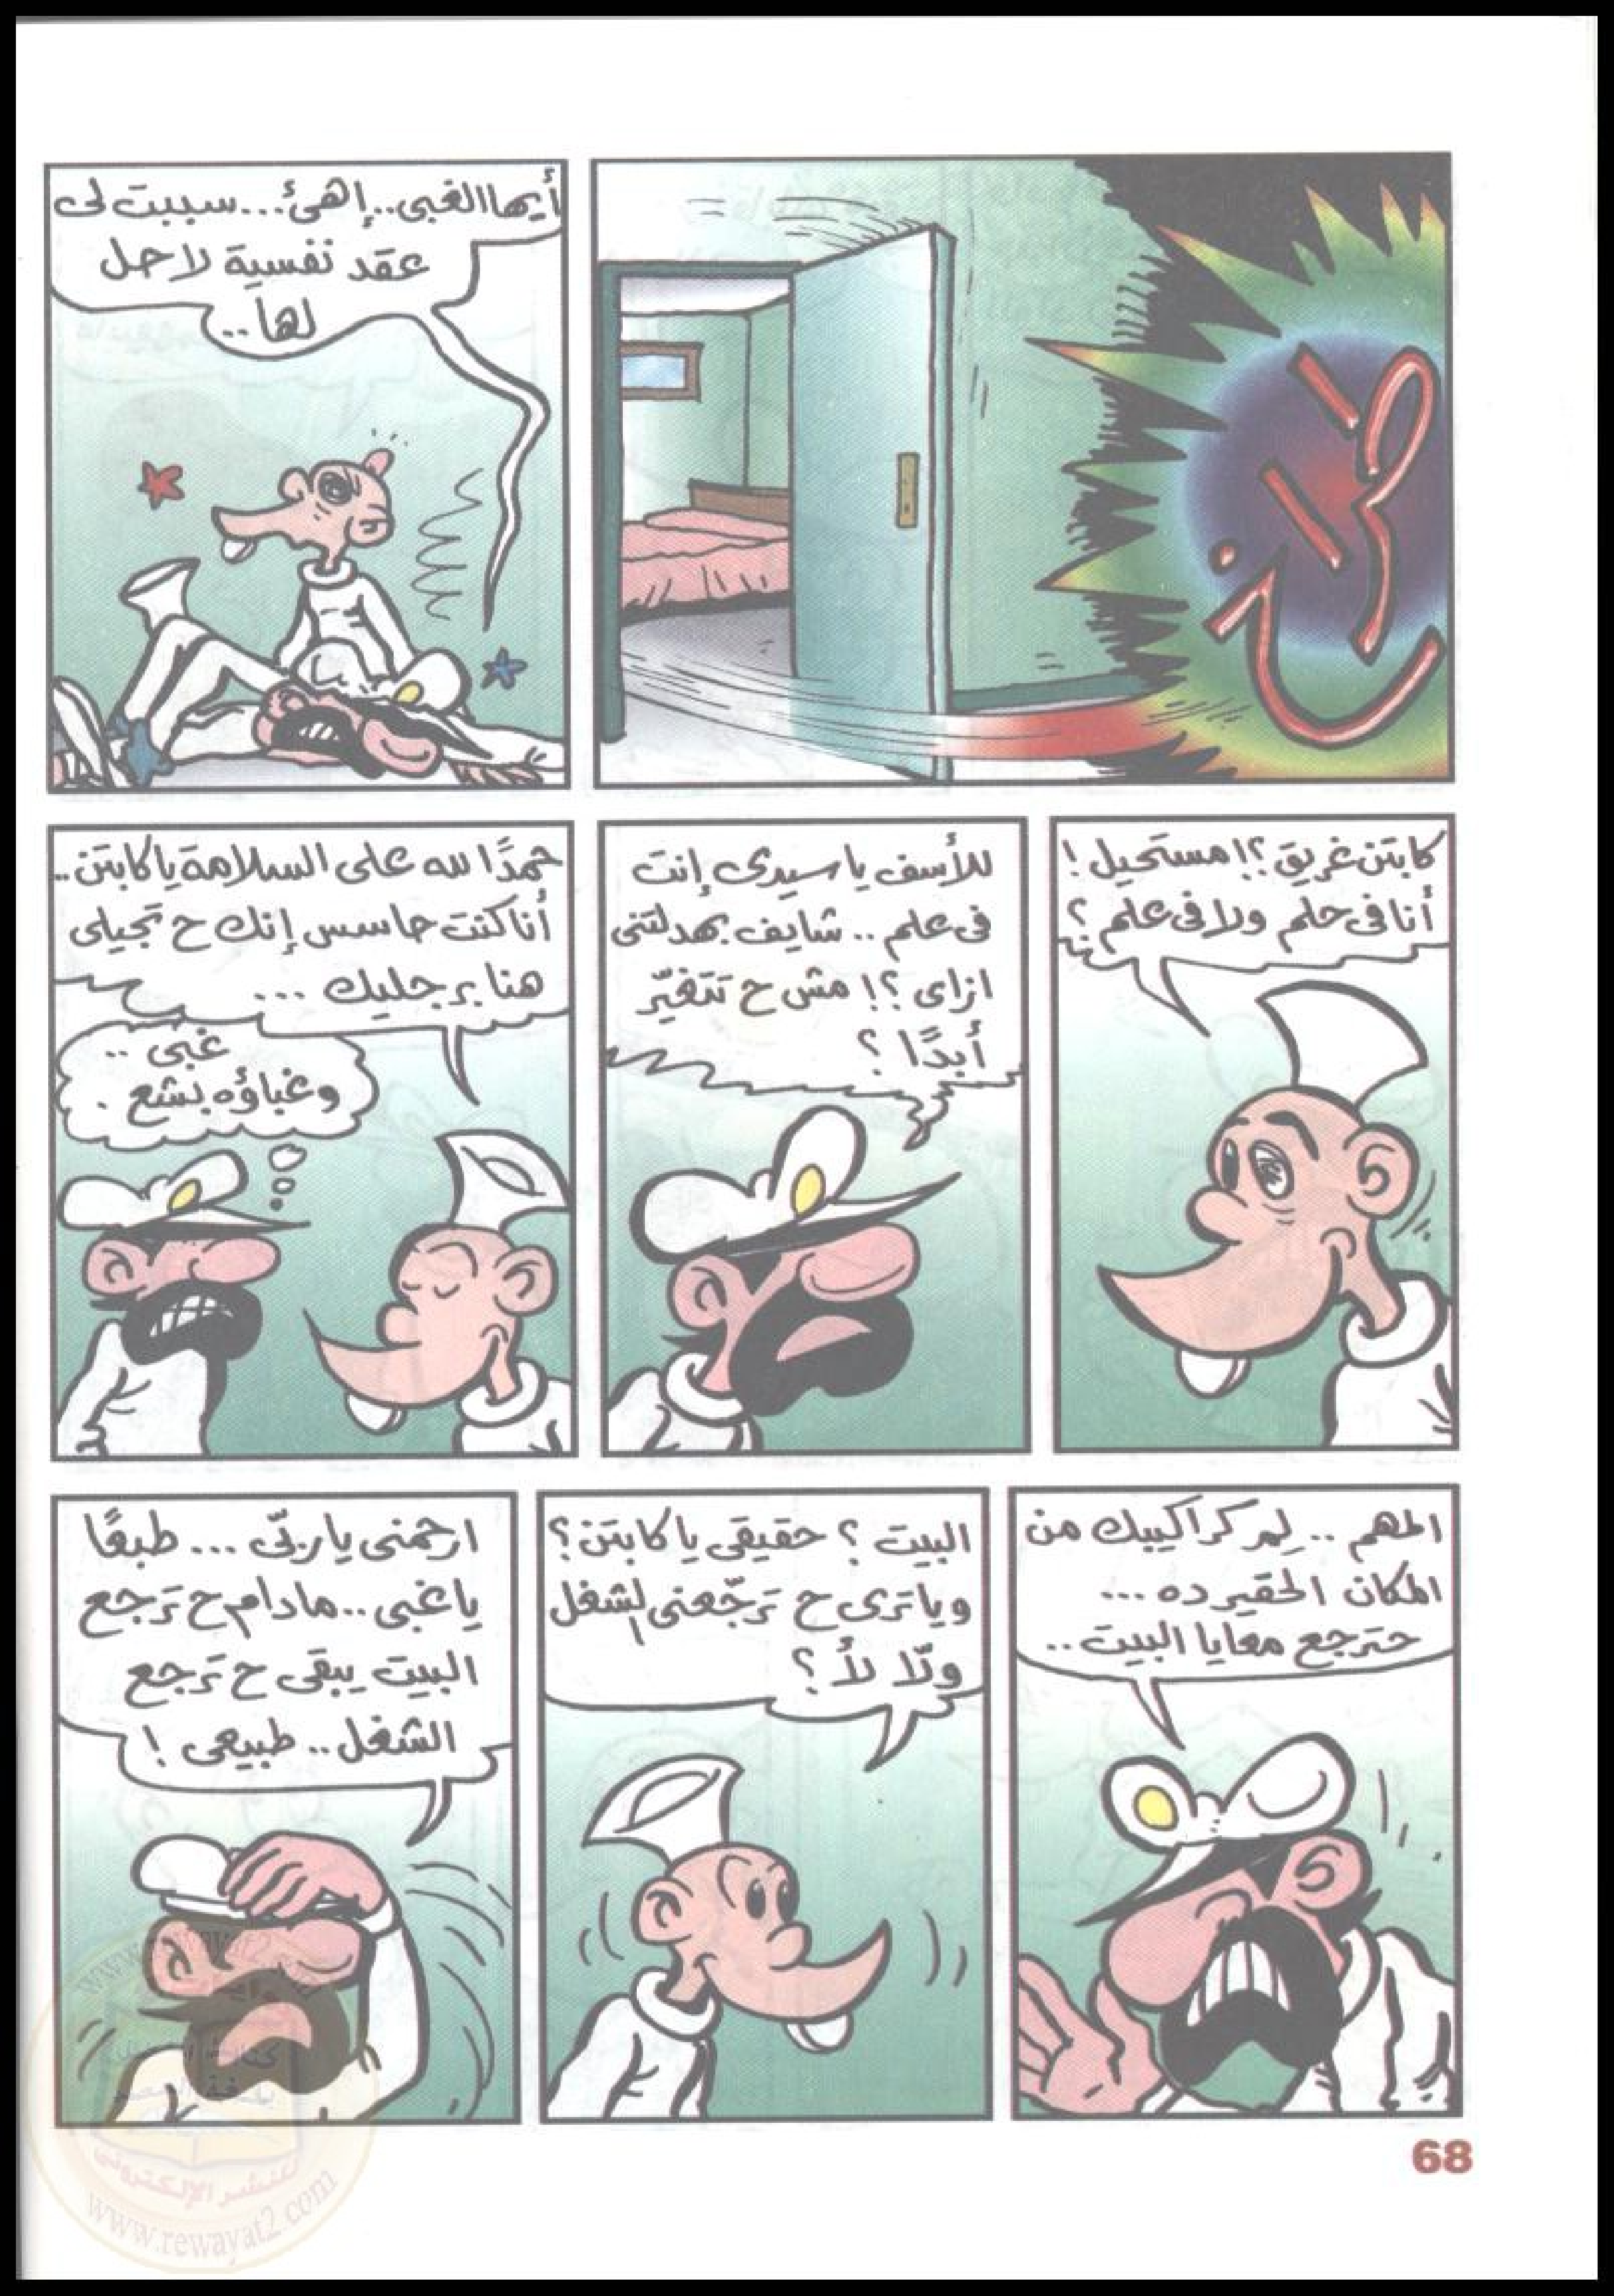 طراخ
أيها الغبى..إهئ...سببت لى
عقد نفسية لا حل
لها..
كابتن غريق؟! مستحيل!
أنا فى حلم ولا فى علم؟
للأسف يا سيدى إنت
فى علم.. شايف بهدلتنى
ازاى؟! مش ح تتغيّر
أبدًا؟
حمدًا لله على السلامة يا كابتن..
أنا كنت حاسس إنك ح تجيلى
هنا برجليك...
غبى..
وغباؤه بشع.
المهم.. لِمر كراكيبك من
المكان الحقير ده...
حترجع معايا البيت..
البيت؟ حقيقى يا كابتن؟
ويا ترى ح ترجّعنى لشغل
ولّا لأ؟
ارحمنى يا ربّى... طبعًا
يا غبى.. مادام ح ترجع
البيت يبقى ح ترجع
الشغل.. طبيعى!
68
للنشر الإلكترونى
www.rewayat2.com